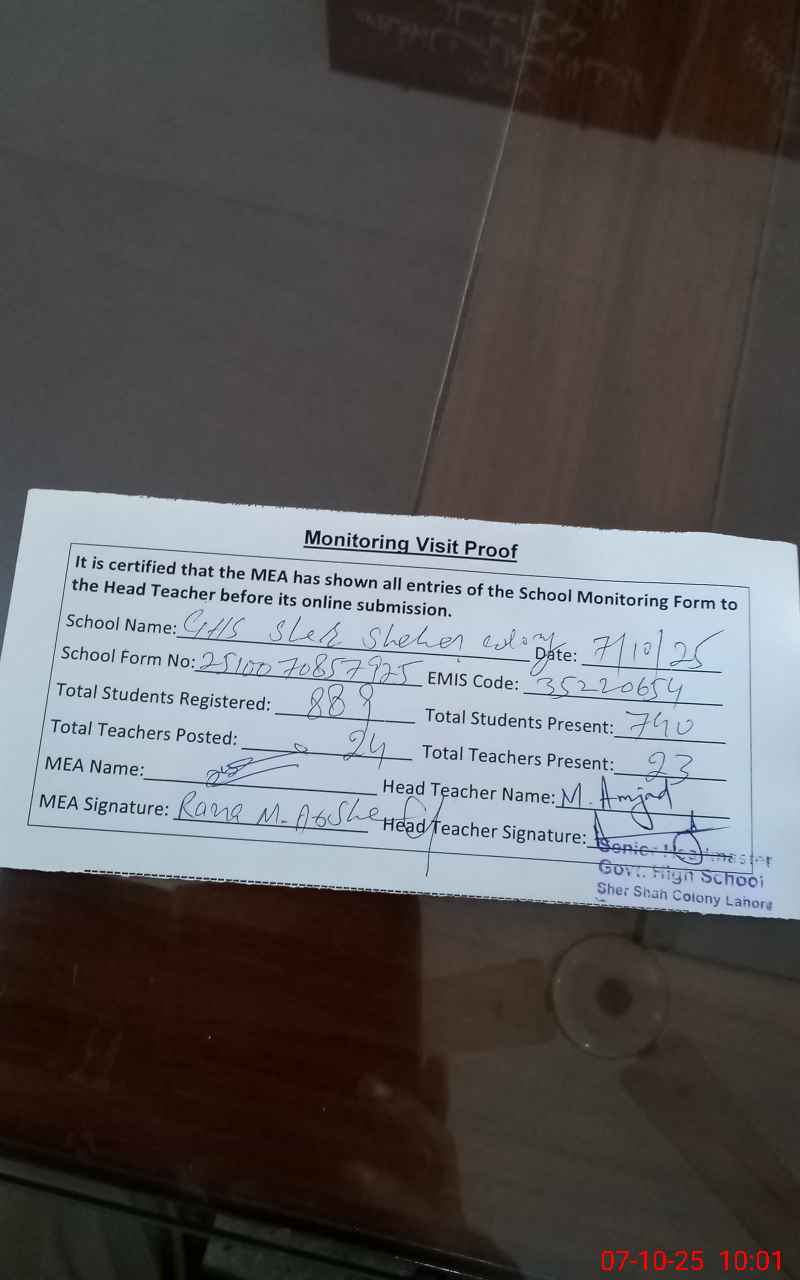 Monitoring Visit Proof
It is certified that the MEA has shown all entries of the School Monitoring Form to
the Head Teacher before its online submission.
School Name: GHS Sher colony Date: 7/10/25
School Form No: 2510070857925 EMIS Code: 35220654
Total Students Registered: 889 Total Students Present: 740
Total Teachers Posted: 24 Total Teachers Present: 23
MEA Name: Head Teacher Name: M. Amjad
MEA Signature: Rana M. Head Teacher Signature:
Senior Headmaster
Govt. High School
Sher Shah Colony Lahore
07-10-25 10:01